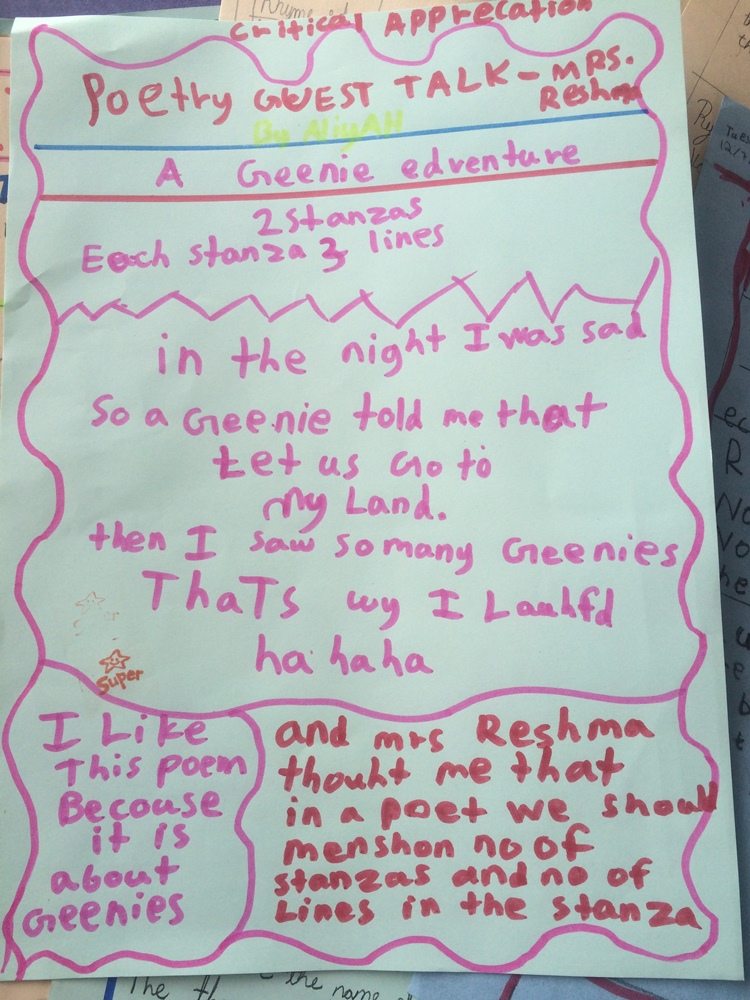 Critical Apprecation
Poetry GUEST TALK - MRS.
Reshma
By AliyAH
A Geenie edventure
2 stanzas
Each stanza 3 lines
in the night I was sad
So a Geenie told me that
Let us Go to
My Land.
then I saw so many Geenies
ThaTs wy I Lauhfd
ha ha ha
Super
I Like
This poem
Becouse
it is
about
Geenies
and mrs Reshma
thouht me that
in a poet we shoud
menshon no of
stanzas and no of
Lines in the stanza
The
the name